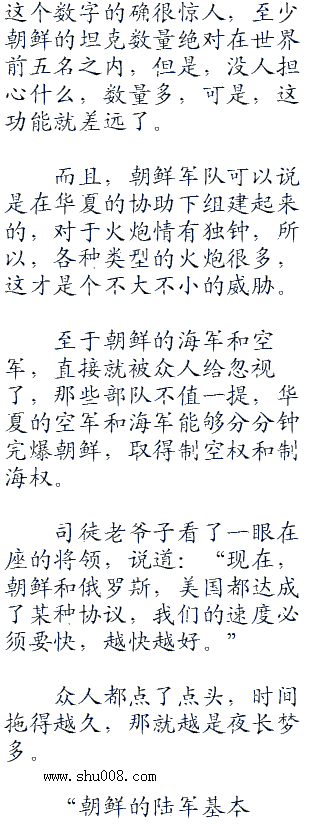 这个数字的确很惊人，至少
朝鲜的坦克数量绝对在世界
前五名之内，但是，没人担
心什么，数量多，可是，这
功能就差远了。
而且，朝鲜军队可以说
是在华夏的协助下组建起来
的，对于火炮情有独钟，所
以，各种类型的火炮很多，
这才是个不大不小的威胁。
至于朝鲜的海军和空
军，直接就被众人给忽视
了，那些部队不值一提，华
夏的空军和海军能够分分钟
完爆朝鲜，取得制空权和制
海权。
司徒老爷子看了一眼在
座的将领，说道：“现在，
朝鲜和俄罗斯，美国都达成
了某种协议，我们的速度必
须要快，越快越好。”
众人都点了点头，时间
拖得越久，那就越是夜长梦
多。
www.shu008.com
“朝鲜的陆军基本